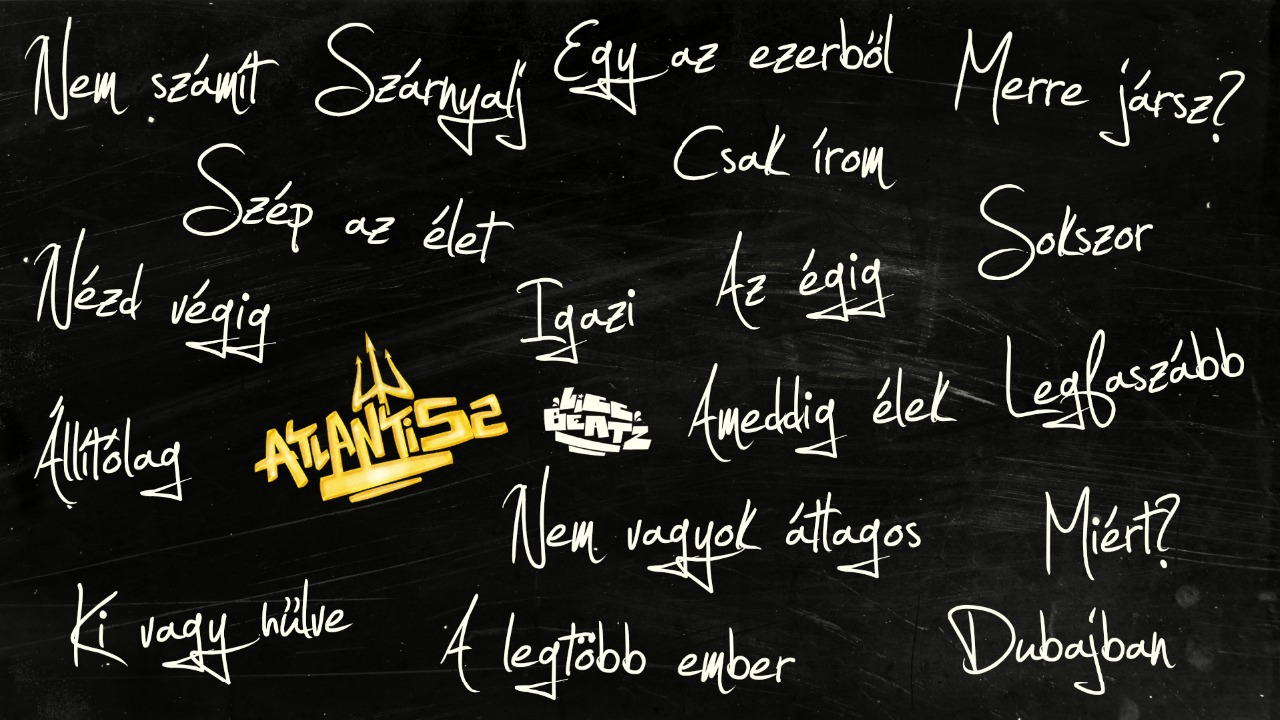 Nem számít
Szárnyalj
Egy az ezerből
Merre jársz?
Csak írom
Szép az élet
Sokszor
Nézd végig
Igazi
Az égig
Legfaszább
Állítólag
ATLANTISZ
BEATZ
Ameddig élek
Nem vagyok átlagos
Miért?
Ki vagy hűlve
A legtöbb ember
Dubajban